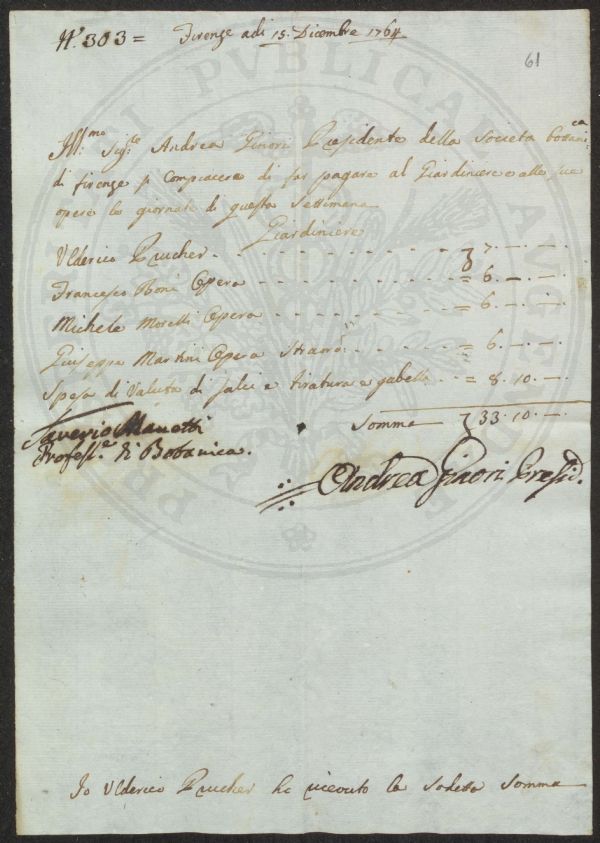 N.° 303 = Firenze adi 15. Dicembre 1764
61
Ill:mo Sig:re Andrea Ginori Presidente della Società Bottanica
di Firenze si compiacerà di far pagare al Giardiniere e alle sue
opere le giornate di questa Settimana
Giardiniere
Ulderico Prucher - - - - - - - - 7. — . —
Francesco Boni Opera - - - - - - - = 6. — . —
Michele Morelli Opera - - - - - - - = 6. — . —
Giuseppe Martini Opera - - - = 6. — . —
Spesa di Valuta di salci e tiratura e gabella - - = 8. 10. —
Somma 33. 10. —
Saverio Manetti
Profess.e di Botanica.
Andrea Ginori Presid.
Io Ulderico Prucher ho riceuto la sodetta Somma